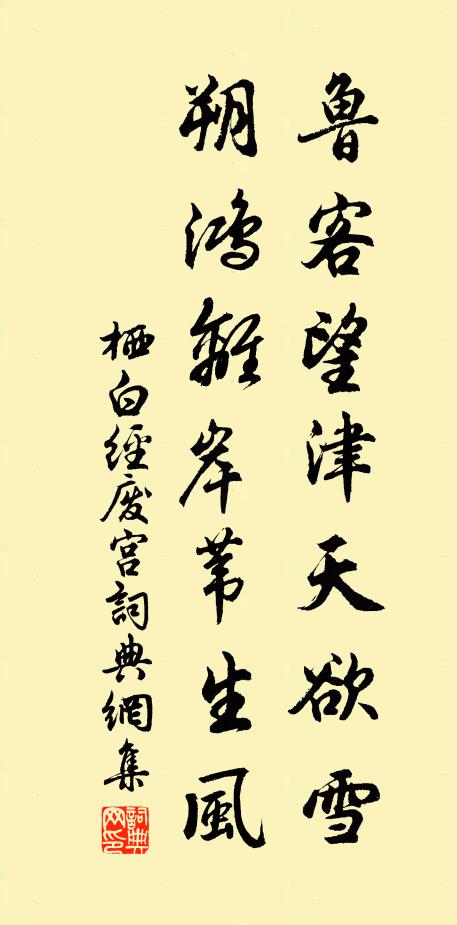 魯客望津天欲雪
朔鴻離岸苇生風
栖白經废宫詞典網集
詞典网印